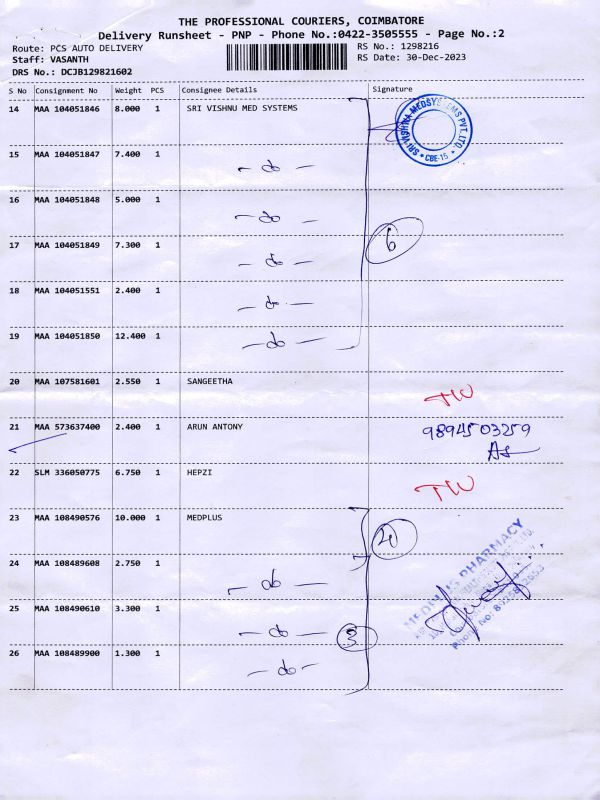 THE PROFESSIONAL COURIERS, COIMBATORE
Delivery Runsheet - PNP - Phone No.:0422-3505555 - Page No.:2
Route: PCS AUTO DELIVERY
RS No.: 1298216
Staff: VASANTH
RS Date: 30-Dec-2023
DRS No.: DCJB129821602
S No Consignment No Weight PCS Consignee Details Signature
14 MAA 104051846 8.000 1 SRI VISHNU MED SYSTEMS
SRI VISHNU MEDSYSTEMS PVT. LTD. * CBE-15 *
15 MAA 104051847 7.400 1
- do -
16 MAA 104051848 5.000 1
- do -
17 MAA 104051849 7.300 1
- do -
6
18 MAA 104051551 2.400 1
- do -
19 MAA 104051850 12.400 1
- do -
20 MAA 107581601 2.550 1 SANGEETHA
TW
21 MAA 573637400 2.400 1 ARUN ANTONY
9894503259
As
22 SLM 336050775 6.750 1 HEPZI
TW
23 MAA 108490576 10.000 1 MEDPLUS
4
24 MAA 108489608 2.750 1
- do -
MEDPLUS PHARMACY
Phone No:
25 MAA 108490610 3.300 1
- do -
3
26 MAA 108489900 1.300 1
- do -